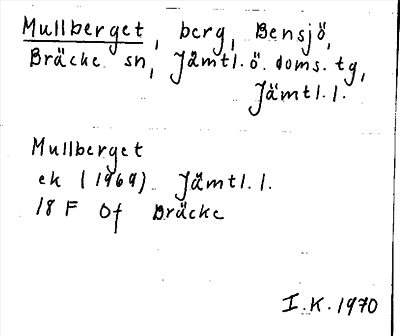 Mullberget, berg, Bensjö,
Bräcke sn, Jämtl. ö. doms. tg,
Jämtl. l.
Mullberget
ek (1969) Jämtl. l.
18 F Of Bräcke
I.K. 1970